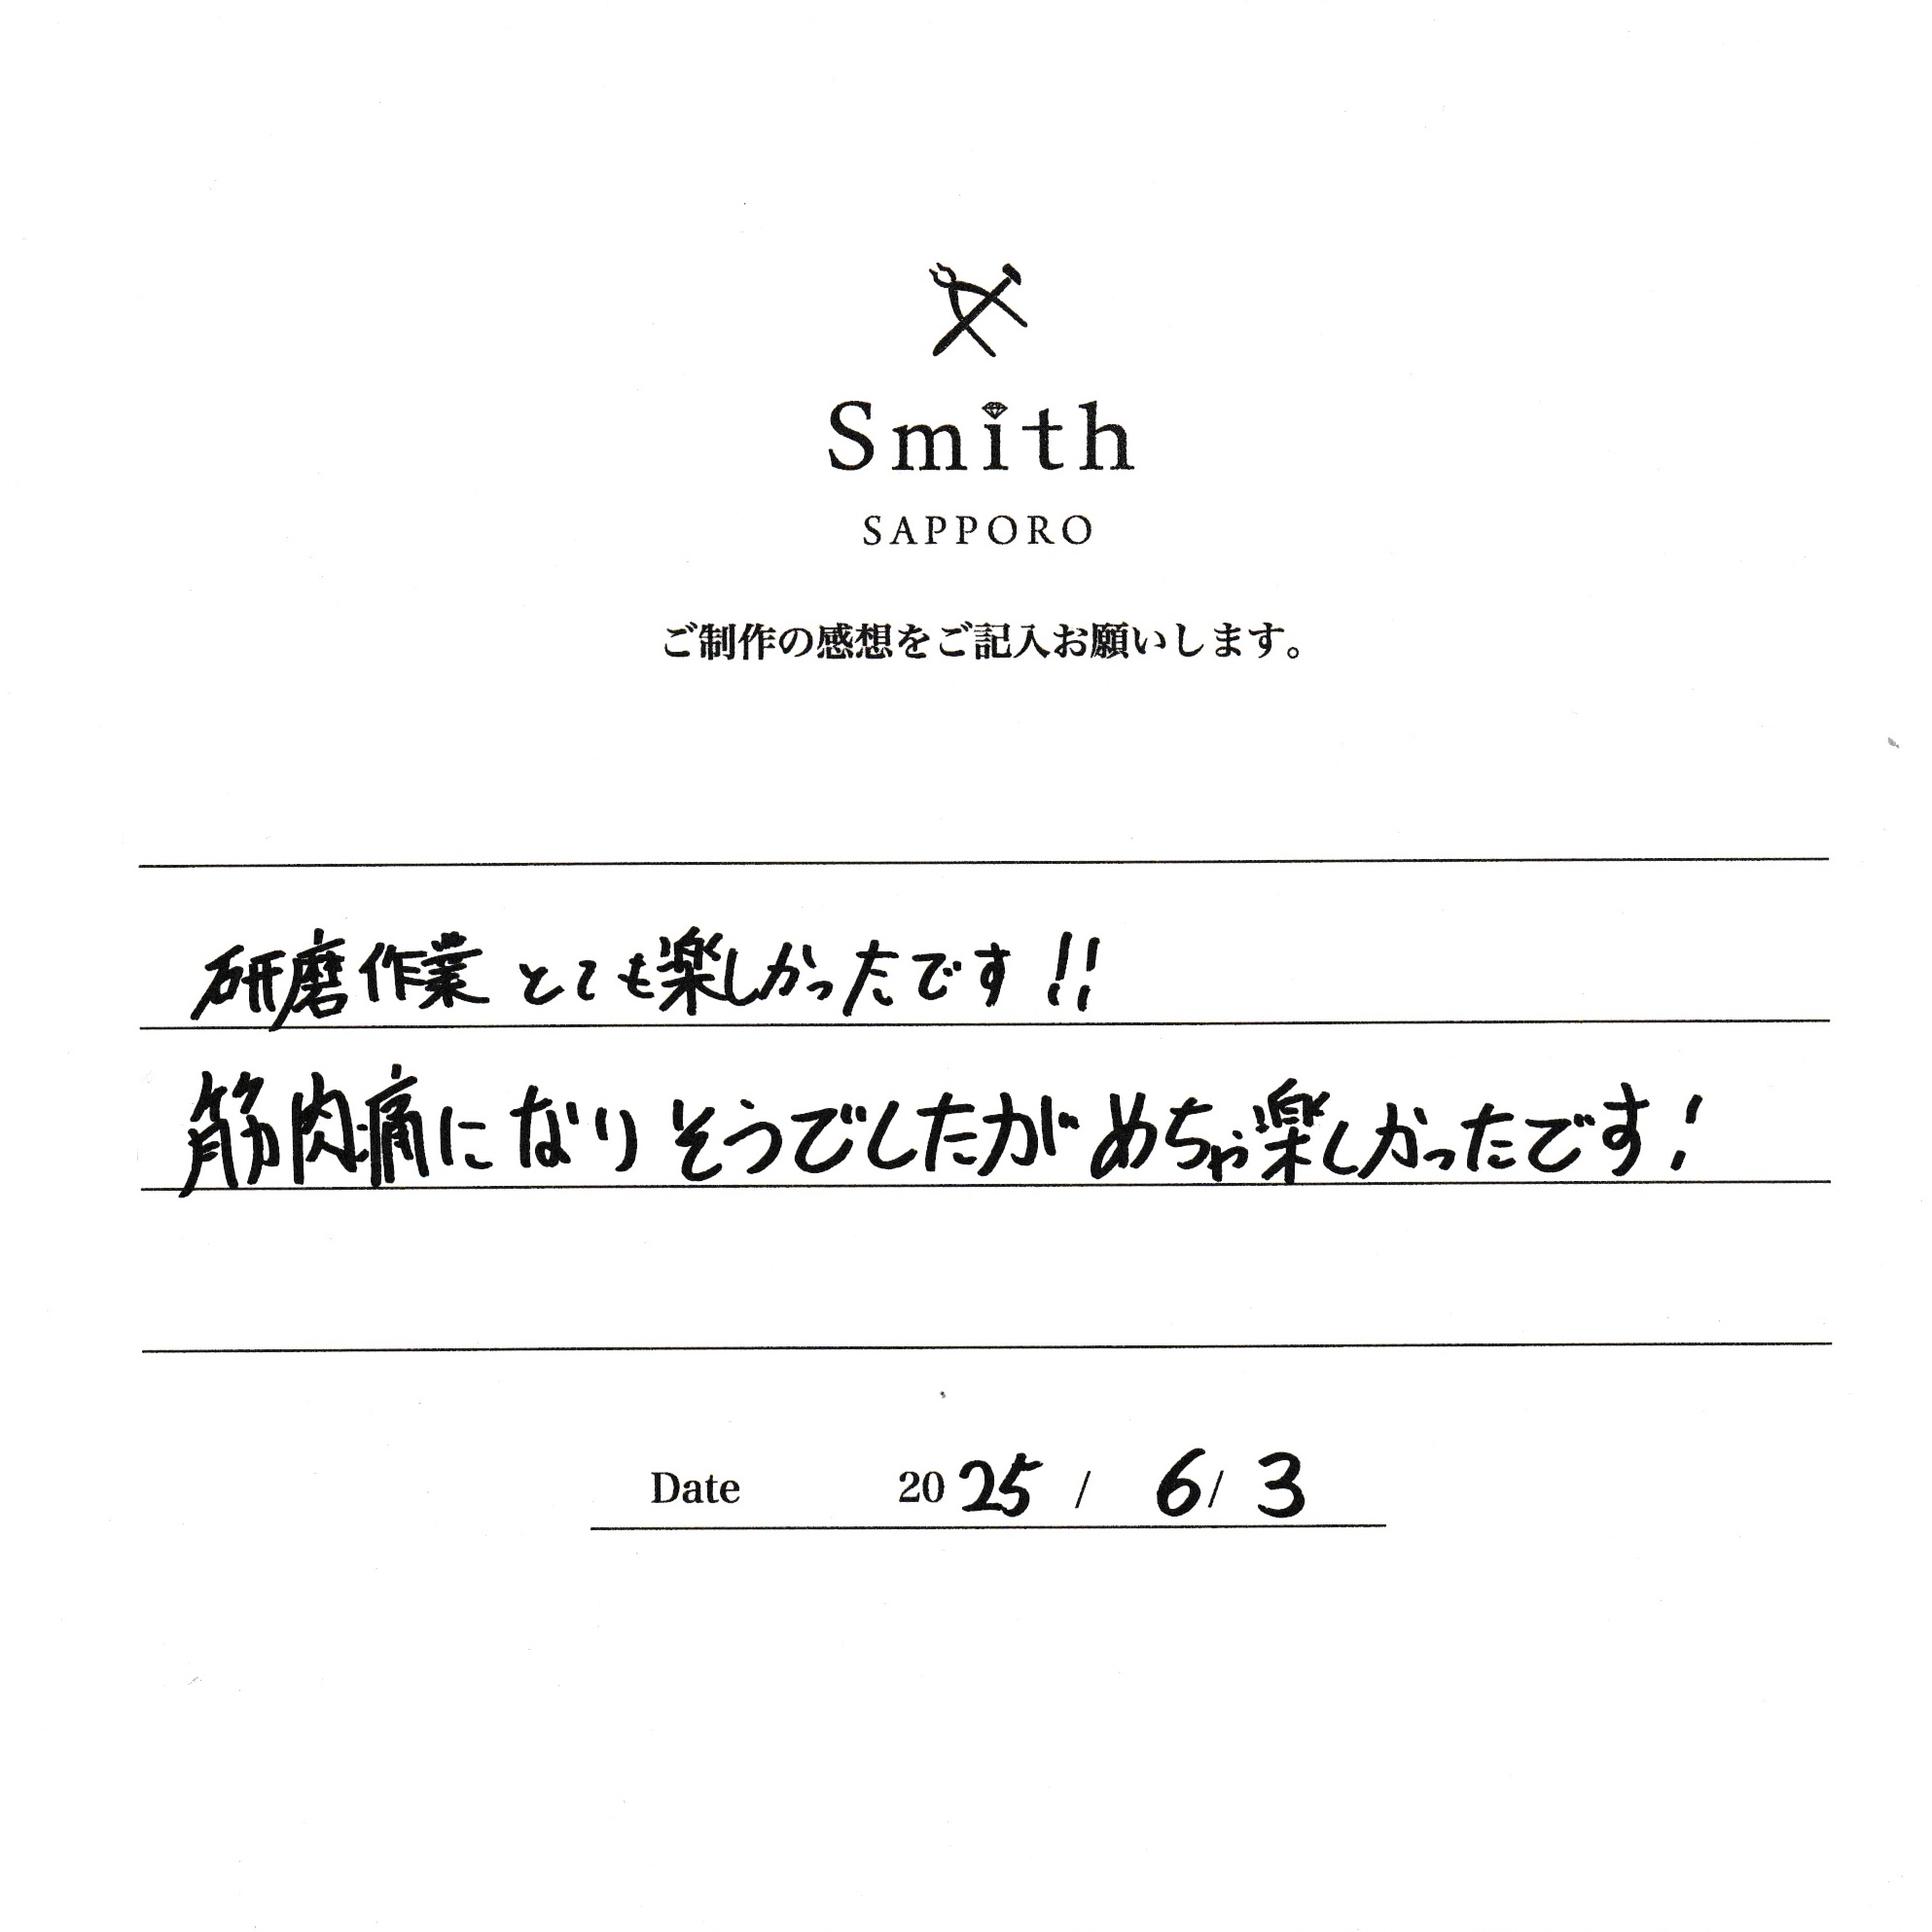 Smith
SAPPORO
ご制作の感想をご記入お願いします。
研磨作業とても楽しかったです!!
筋肉痛になりそうでしたがめちゃ楽しかったです!
Date 2025 / 6 / 3